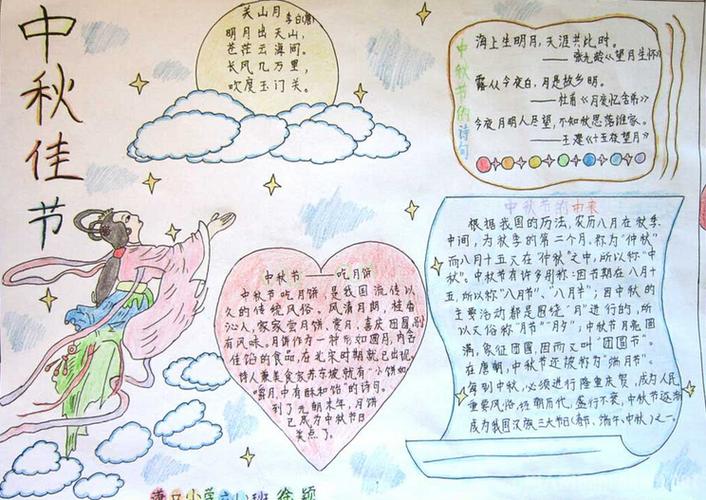 中秋佳节
关山月 李白(唐)
明月出天山,
苍茫云海间。
长风几万里,
吹度玉门关。
中秋节的诗句
海上生明月,天涯共此时。
——张九龄《望月生怀》
露从今夜白,月是故乡明。
——杜甫《月夜忆舍弟》
今夜月明人尽望,不知秋思落谁家。
——王建《十五夜望月》
中秋节——吃月饼
中秋节吃月饼,是我国流传以
久的传统风俗。风清月朗,桂香
沁人,家家尝月饼,赏月,喜庆团圆,别
有风味。月饼作为一种形如圆月,内含
佳馅的食品,在北宋时期就已出现。
诗人兼美食家苏东坡就有"小饼如
嚼月,中有酥和饴"的诗句。
到了元朝末年,月饼
已成为中秋节日
美点了。
中秋节的由来
根据我国的历法,农历八月在秋季
中间,为秋季的第二个月,称为"仲秋"
而八月十五又在"仲秋"之中,所以称"中
秋"。中秋节有许多别称:因节期在八月十
五,所以称"八月节"、"八月半";因中秋的
主要活动都是围绕"月"进行的,所
以又俗称"月节""月夕";中秋节月亮圆
满,象征团圆,因而又叫"团圆节"。
在唐朝,中秋节还被称为"端月节"。
每到中秋,必须进行隆重庆贺,成为人民
重要风俗,历朝历代,盛行不衰,中秋节逐渐
成为我国汉族三大节(春节、端午、中秋)之一。
小学六(1)班 徐颖